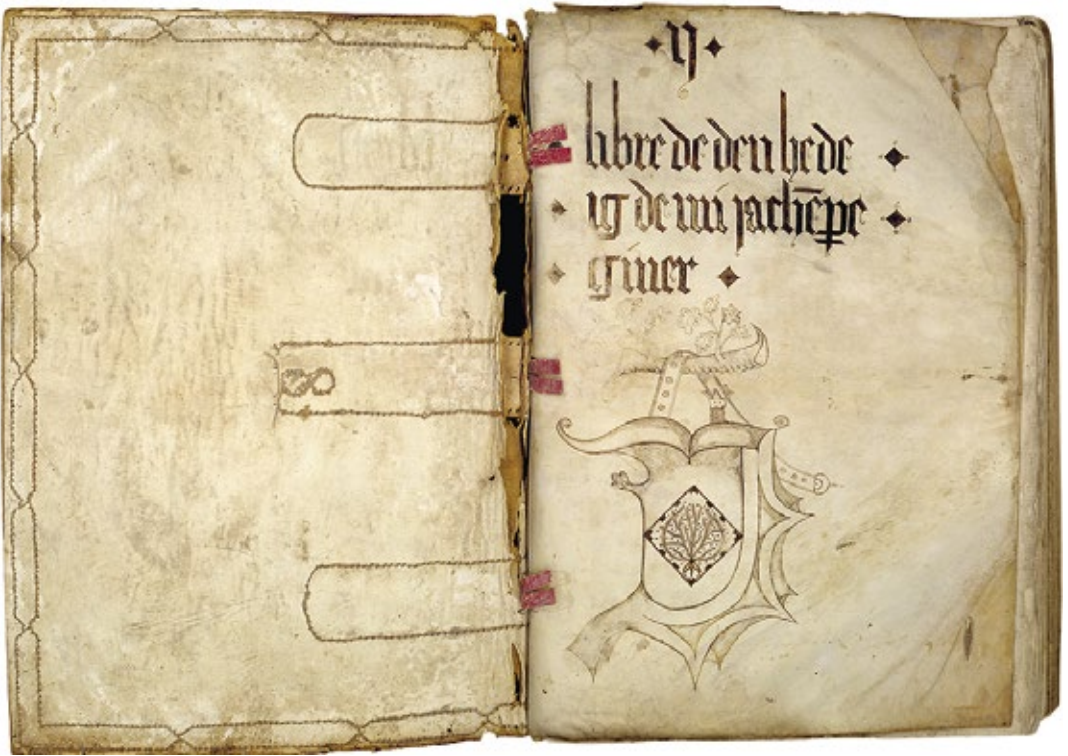 ·y·
libre de deu he de
ig de mi jachēꝑe
giner